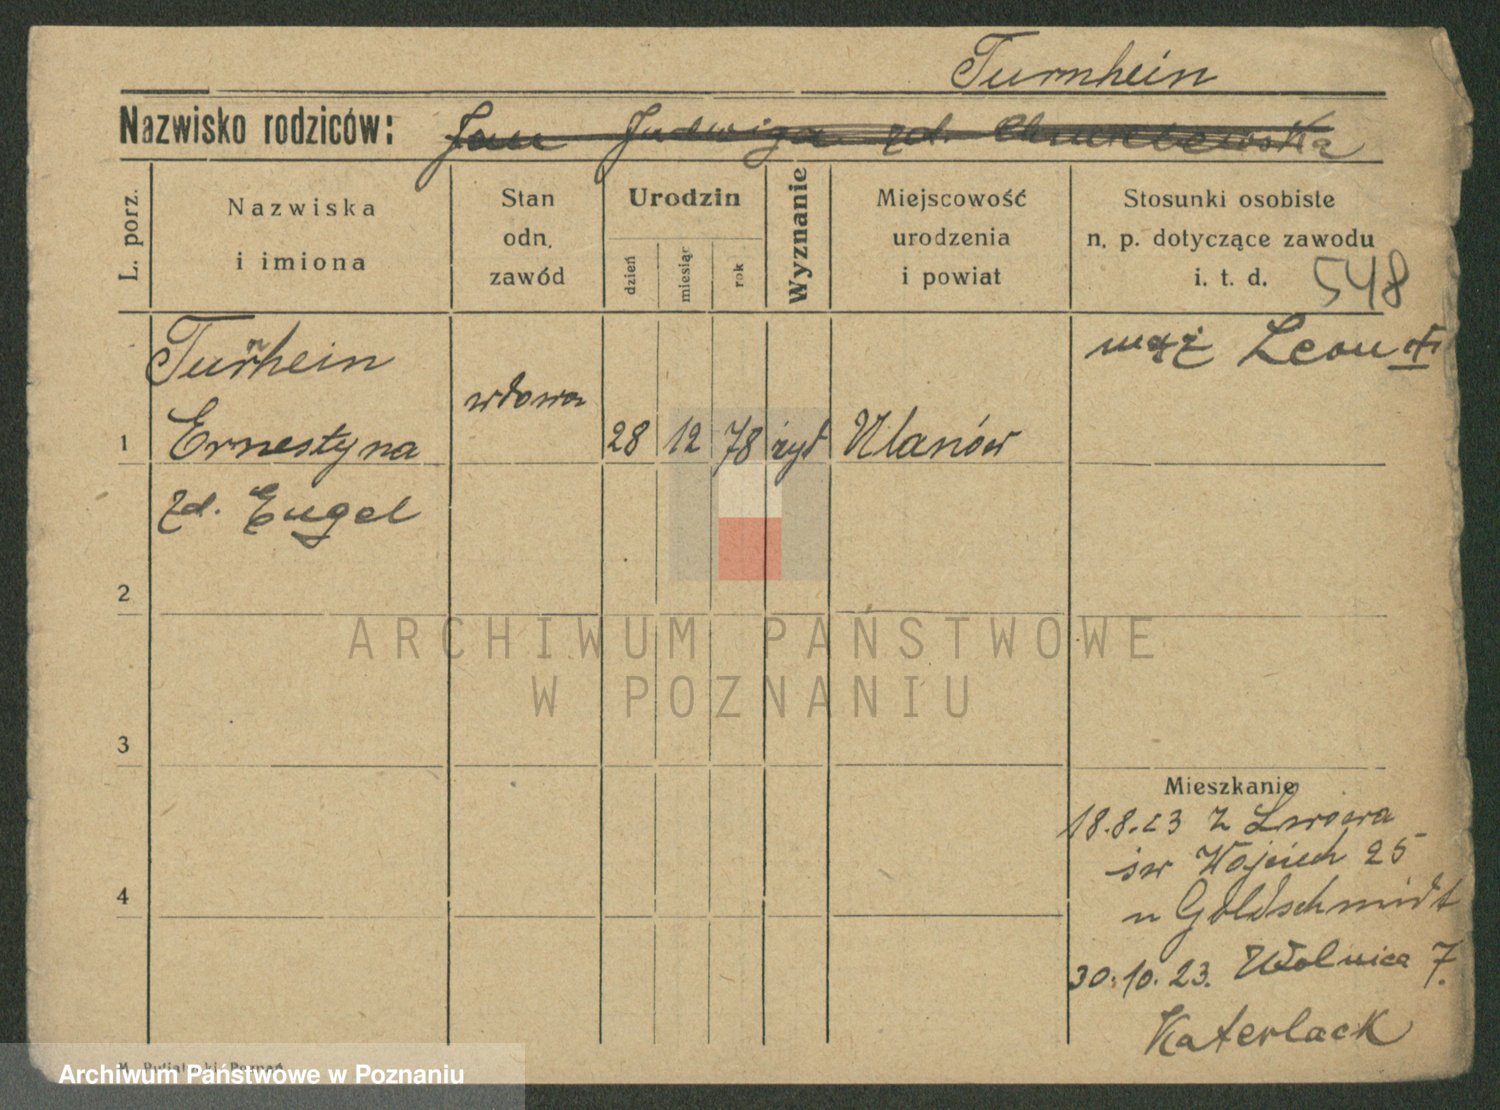 Turnhein
Nazwisko rodziców: Jan Jadwiga zd.
L. porz.
Nazwiska
i imiona
Stan
odn.
zawód
Urodzin
dzień
miesiąc
rok
Wyznanie
Miejscowość
urodzenia
i powiat
Stosunki osobiste
n. p. dotyczące zawodu
i. t. d.
548
Turnhein
mąż Leon
wdowa
1 Ernestyna 28 12 78 żyd Ulanów
zd. Engel
2
ARCHIWUM PAŃSTWOWE
W POZNANIU
3
Mieszkanie
18.8.23 z Lwowa
św Wojciech 25
u Goldschmidt
4
30.10.23. Wolnica 7.
Katerlack
Archiwum Państwowe w Poznaniu